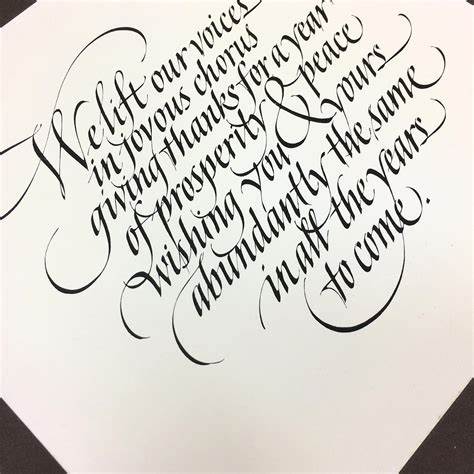 We lift our voices
in joyous chorus
giving thanks for a year
of prosperity & peace
wishing you & yours
abundantly the same
in all the years
to come.